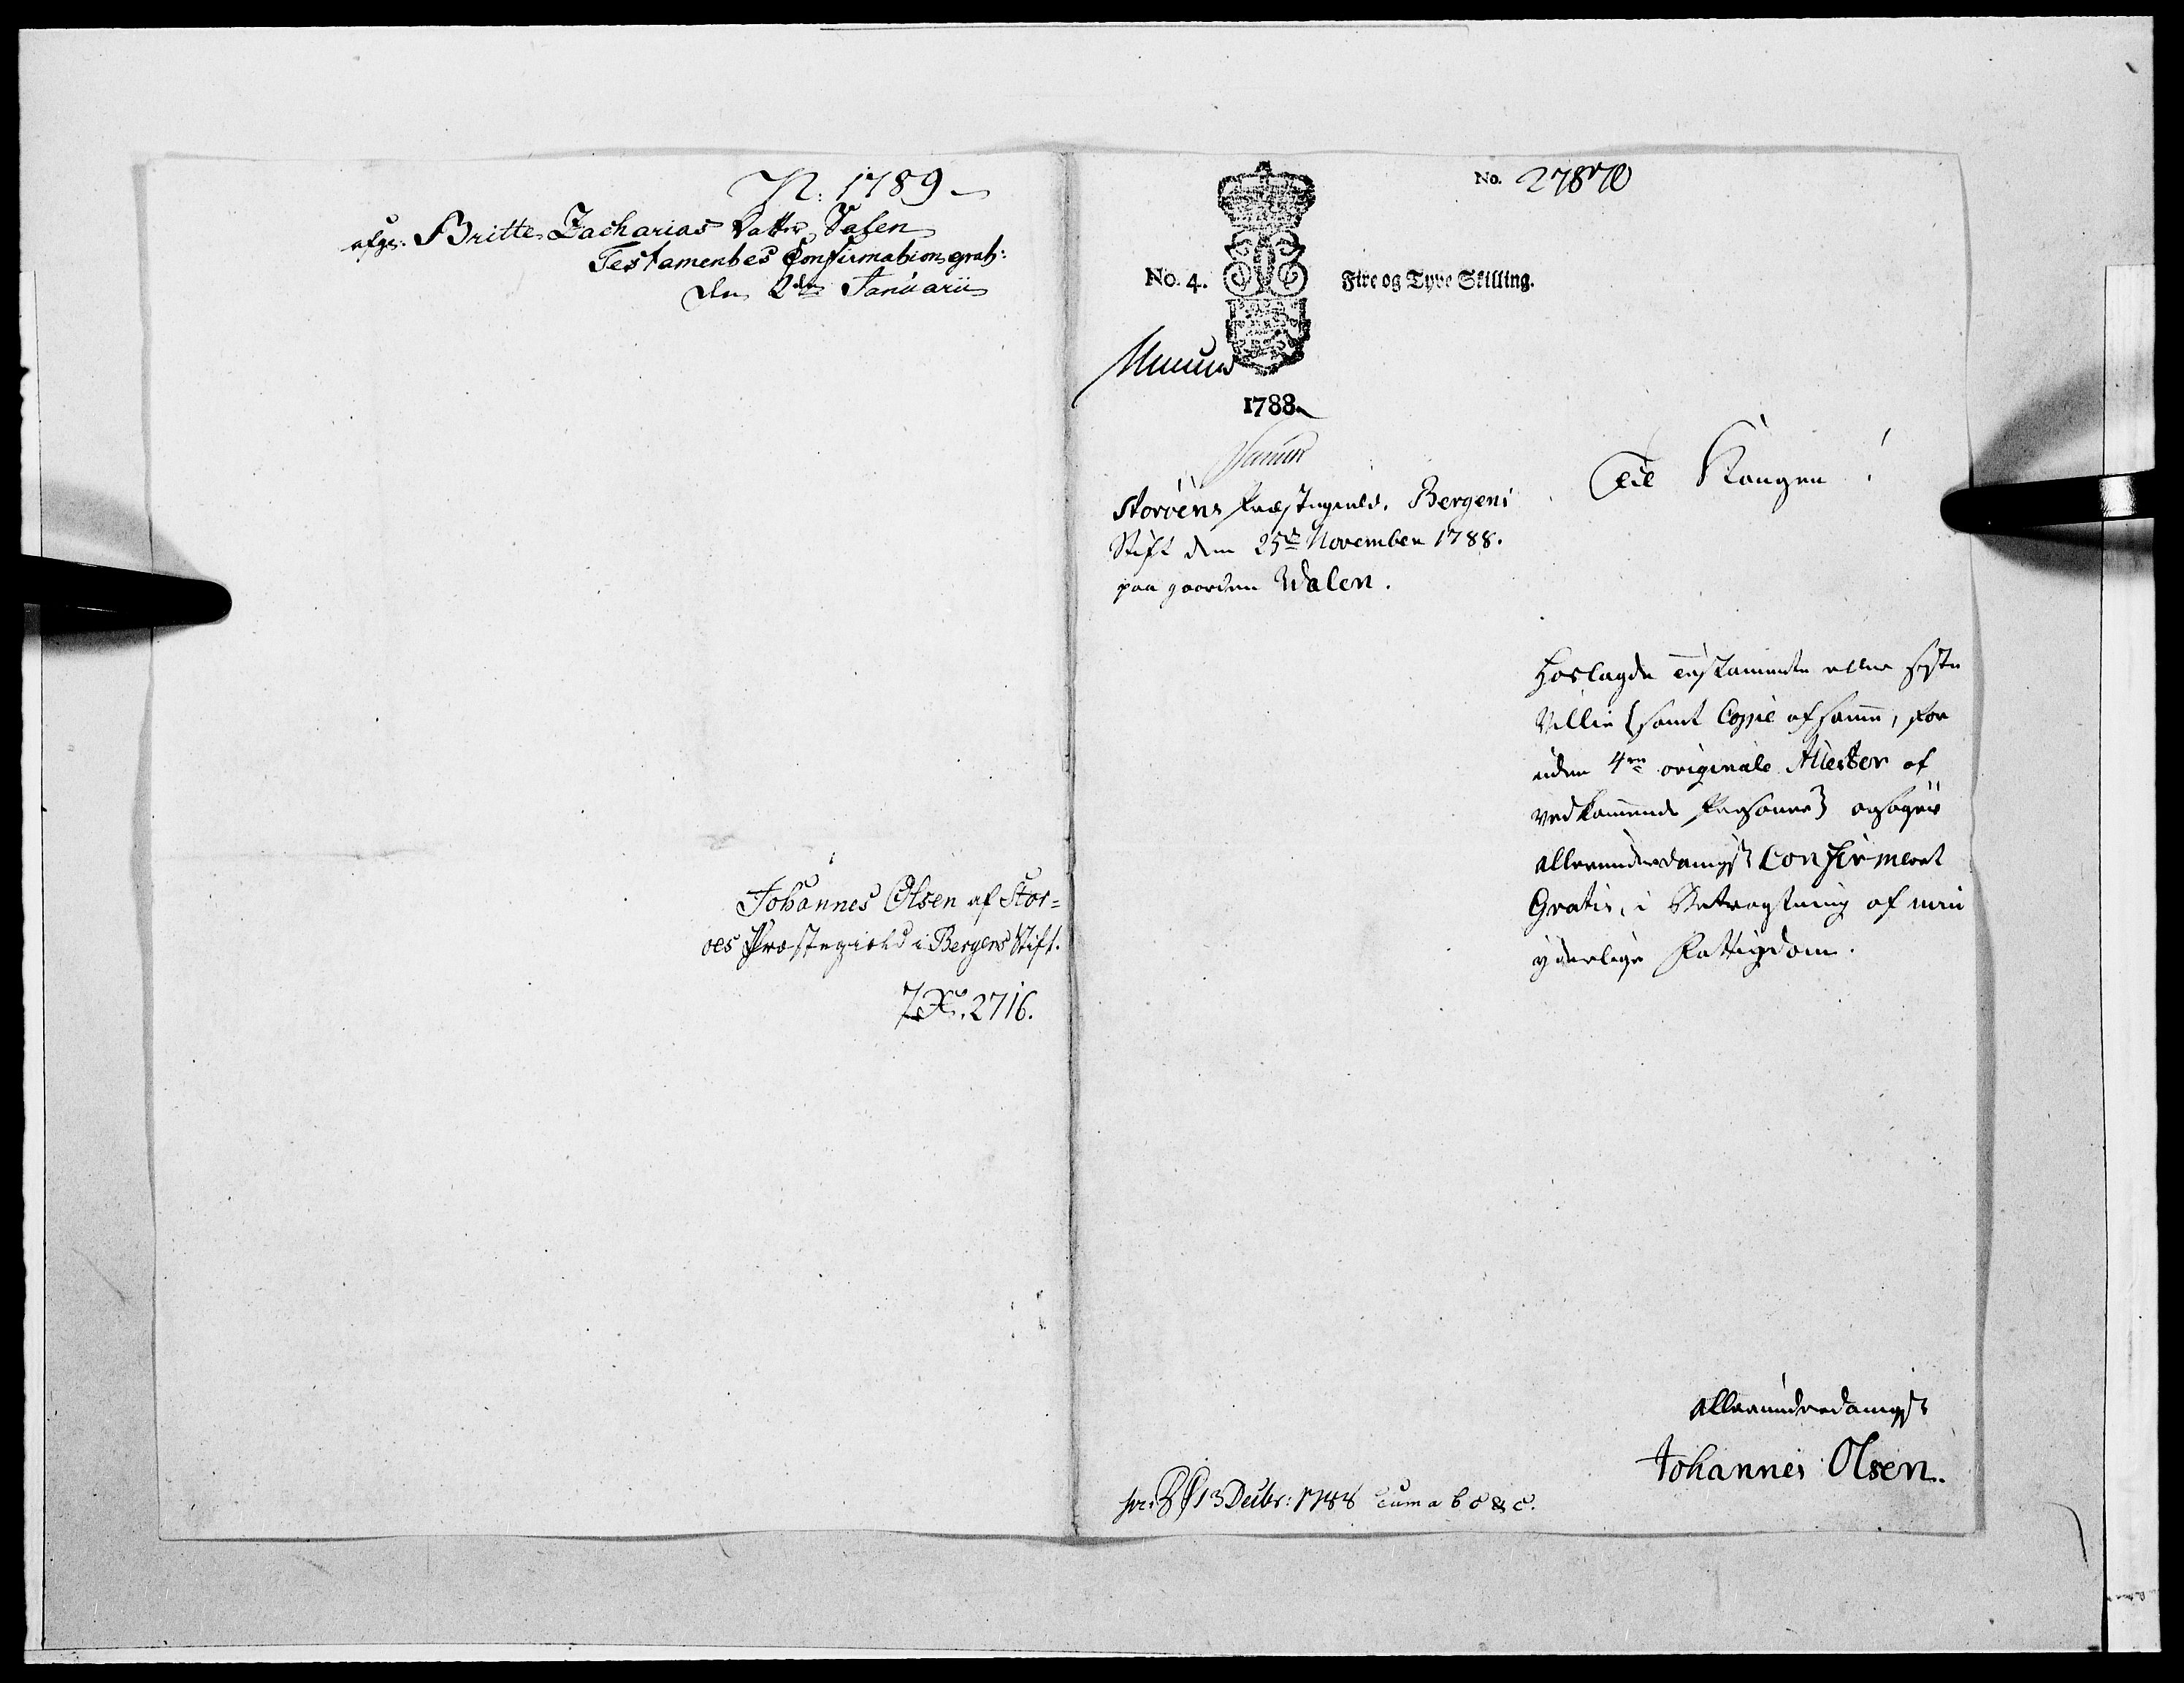 N: 1789
afgr. Britte Zacharias Datter Valen
Testamentes Confirmation grat:
den 2den Januarii
Johannes Olsen af Stor=
øes Præstegield i Bergens Stift.
2716.
No. 27870
No. 4.
Fire og Tyve Skilling.
1788
Storøens Præstegield, Bergens
Stift den 25de November 1788.
paa gaarden Walen.
Til Kongen!
Hoslagde Testamente eller sidste
Villie (samt Copie af samme, for
uden 4re originale Attester af
vedkommende Personer) ansøges
allerunderdanigst Confirmeret
Gratis, i Betragtning af min
yderlige Fattigdom.
Allerunderdanigst
Johannes Olsen.
pr: 13 Decbr: 1788 cum a b c & c.